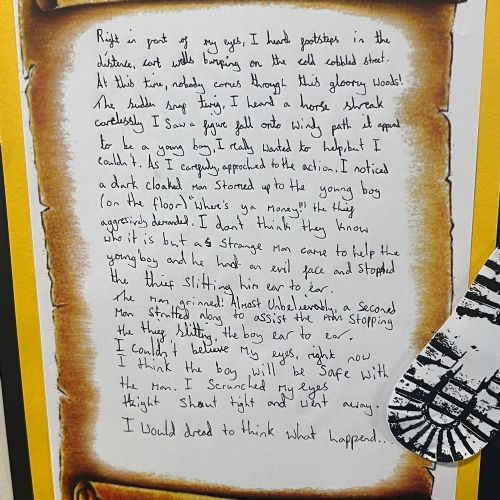 Right in front of my eyes, I heard footsteps in the
distence, cart wells bumping on the cold cobbled street.
At this time, nobody comes through this gloomy woods!
The sudden snap twig, I heard a horse shreak
carelessly I saw a figure fall onto windy path it appeal
to be a young boy, I really wanted to help, but I
couldn't. As I carefuly approched to the action, I noticed
a dark cloaked man stormed up to the young boy
(on the floor) "Where's ya money?!" the thief
aggresively demanded. I dont think they know
who it is but a strange man came to help the
young boy and he had an evil face and stopped
the thief slitting him ear to ear.
The man grinned! Almost Unbelievebly, a second
man strutted along to assist the man stopping
the thief slitting, the boy ear to ear.
I couldn't believe my eyes, right now
I think the boy will be safe with
the man. I scrunched my eyes
thight shout tight and went away.
I would dread to think what happend...